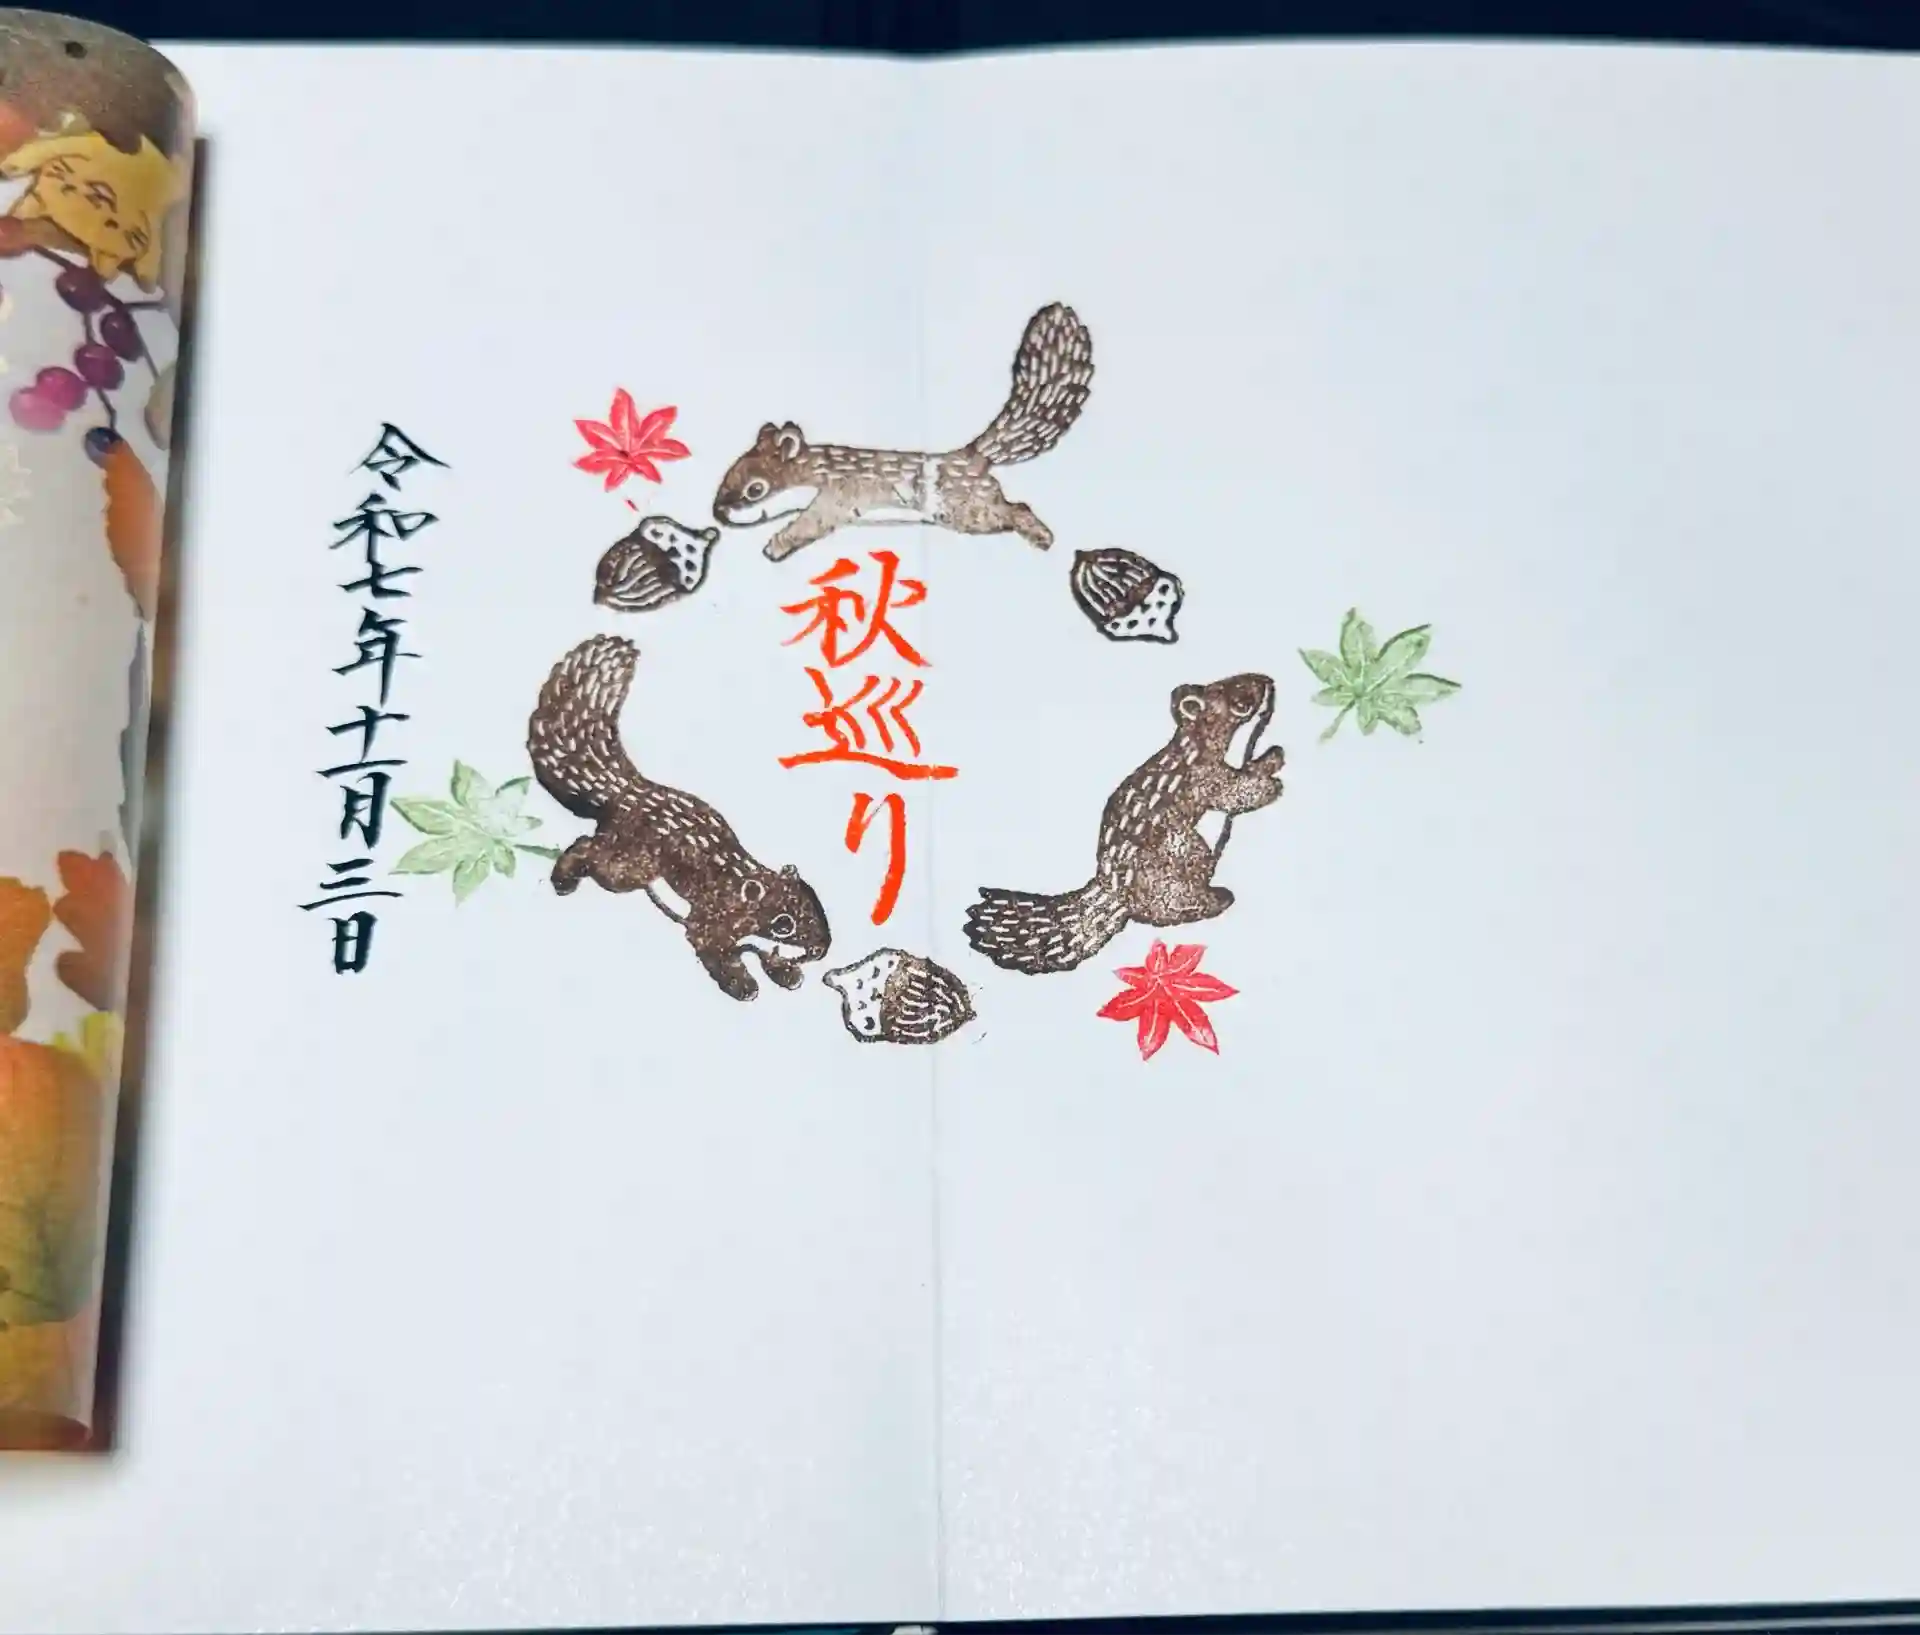 秋巡り
令和七年十一月三日